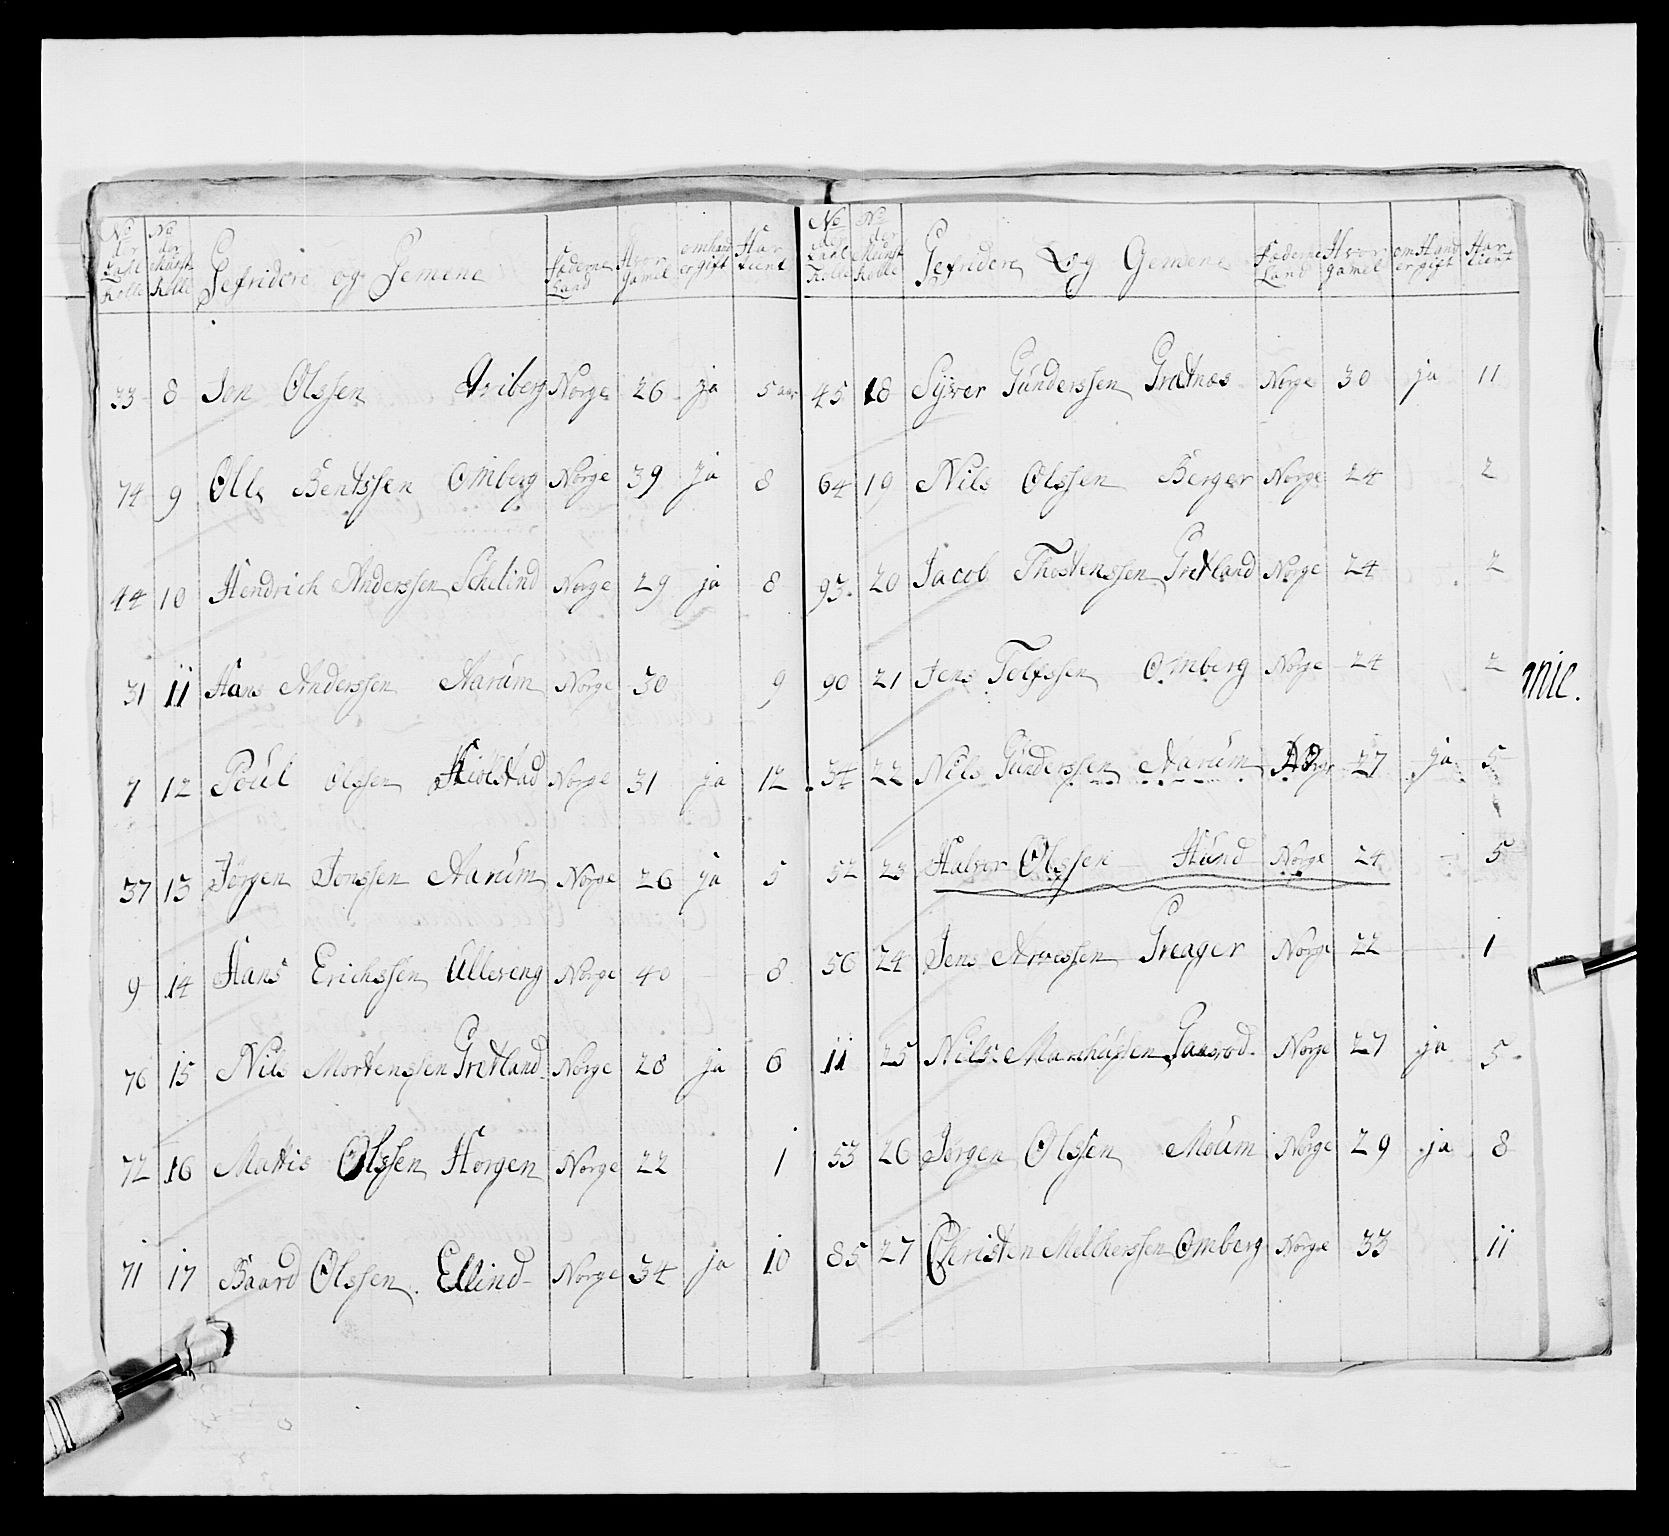 No der Rolle No der Munst Rolle Gefridere og Gemene Fæderne Land Hvor gamel om hand er gift Har tient
33 8 Jon Olssen Norge 26 ja 5 aar
74 9 Olle Bentssen Omberg Norge 39 ja 8
44 10 Hendrich Anderssen Schelind Norge 29 ja 8
31 11 Hans Anderssen Aarum Norge 30 9
7 12 Poul Olssen Norge 31 ja 12
37 13 Jörgen Jonssen Aarum Norge 26 ja 5
9 14 Hans Erichssen Ullereng Norge 40 8
76 15 Nils Mortenssen Gretland Norge 28 ja 6
72 16 Mattis Olssen Horgen Norge 22 1
71 17 Baard Olssen Ellind Norge 34 ja 10
No der Rolle No der Munst Rolle Gefridere Og Gemene Fæderne Land Hvor gamel om Hand er gift Har tient
45 18 Syver Gunderssen Gretnes Norge 30 ja 11
64 19 Nils Olssen Berger Norge 24 2
93 20 Jacob Thostenssen Gretland Norge 24 2
90 21 Jens Tolfssen Omberg Norge 24 2
34 22 Nils Gunderssen Aarum 27 ja 5
52 23 Halvor Olssen Hund Norge 24 5
56 24 Jens Arvessen Greager Norge 22 1
11 25 Nils Norge 27 ja 5
53 26 Jörgen Olssen Moum Norge 29 ja 8
85 27 Christen Melcherssen Omberg Norge 33 11
nie.